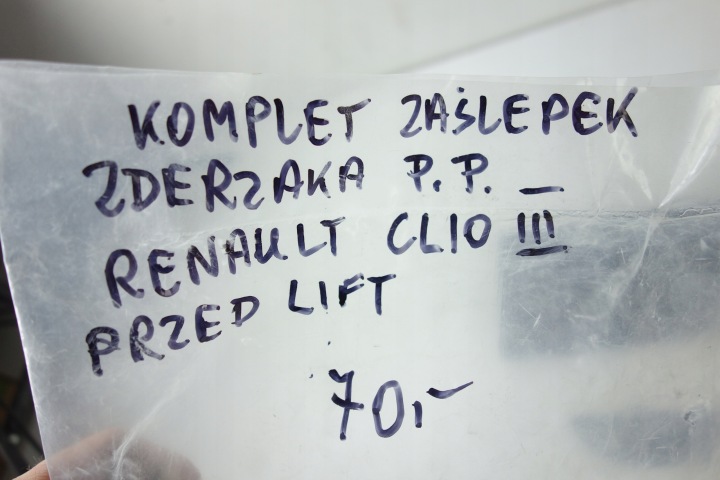 KOMPLET ZAŚLEPEK
ZDERZAKA P.P.
RENAULT CLIO III
PRZED LIFT
70,-